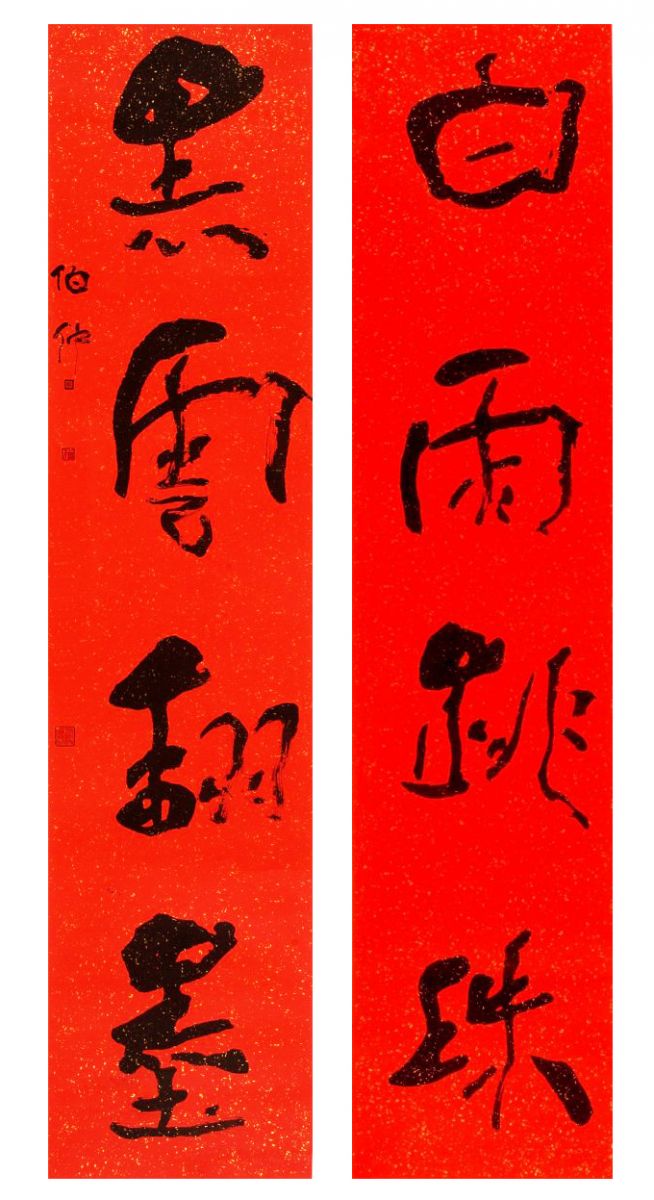 白雨跳珠
黑雲翻墨
伯仲